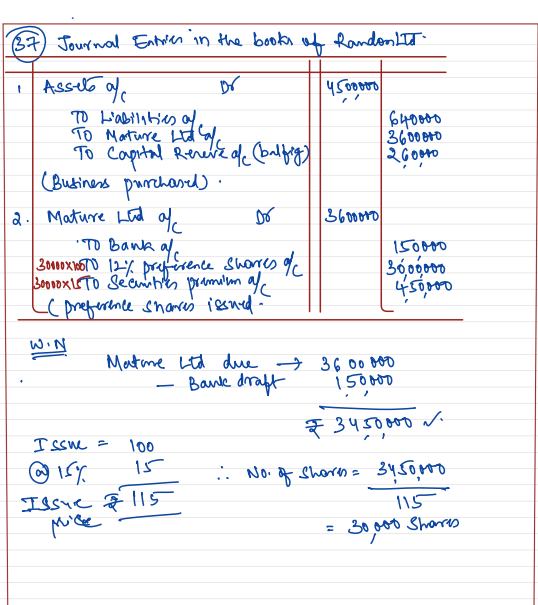 37 Journal Entries in the books of Random LTD.
1 Assets a/c Dr 4500000
To Liabilities a/c 640000
To Mature Ltd a/c 3600000
To Capital Reserve a/c (bal fig) 260000
(Business purchased).
2. Mature Ltd a/c Dr 3600000
To Bank a/c 150000
30000x100 To 12% preference shares a/c 3000000
30000x15 To Securities premium a/c 450000
(preference shares issued.
W.N
Mature Ltd due → 3600000
— Bank draft 150000
₹ 3450000 ✓.
Issue = 100
@ 15% 15
∴ No. of shares = 3450000
Issue price ₹ 115
115
= 30,000 Shares